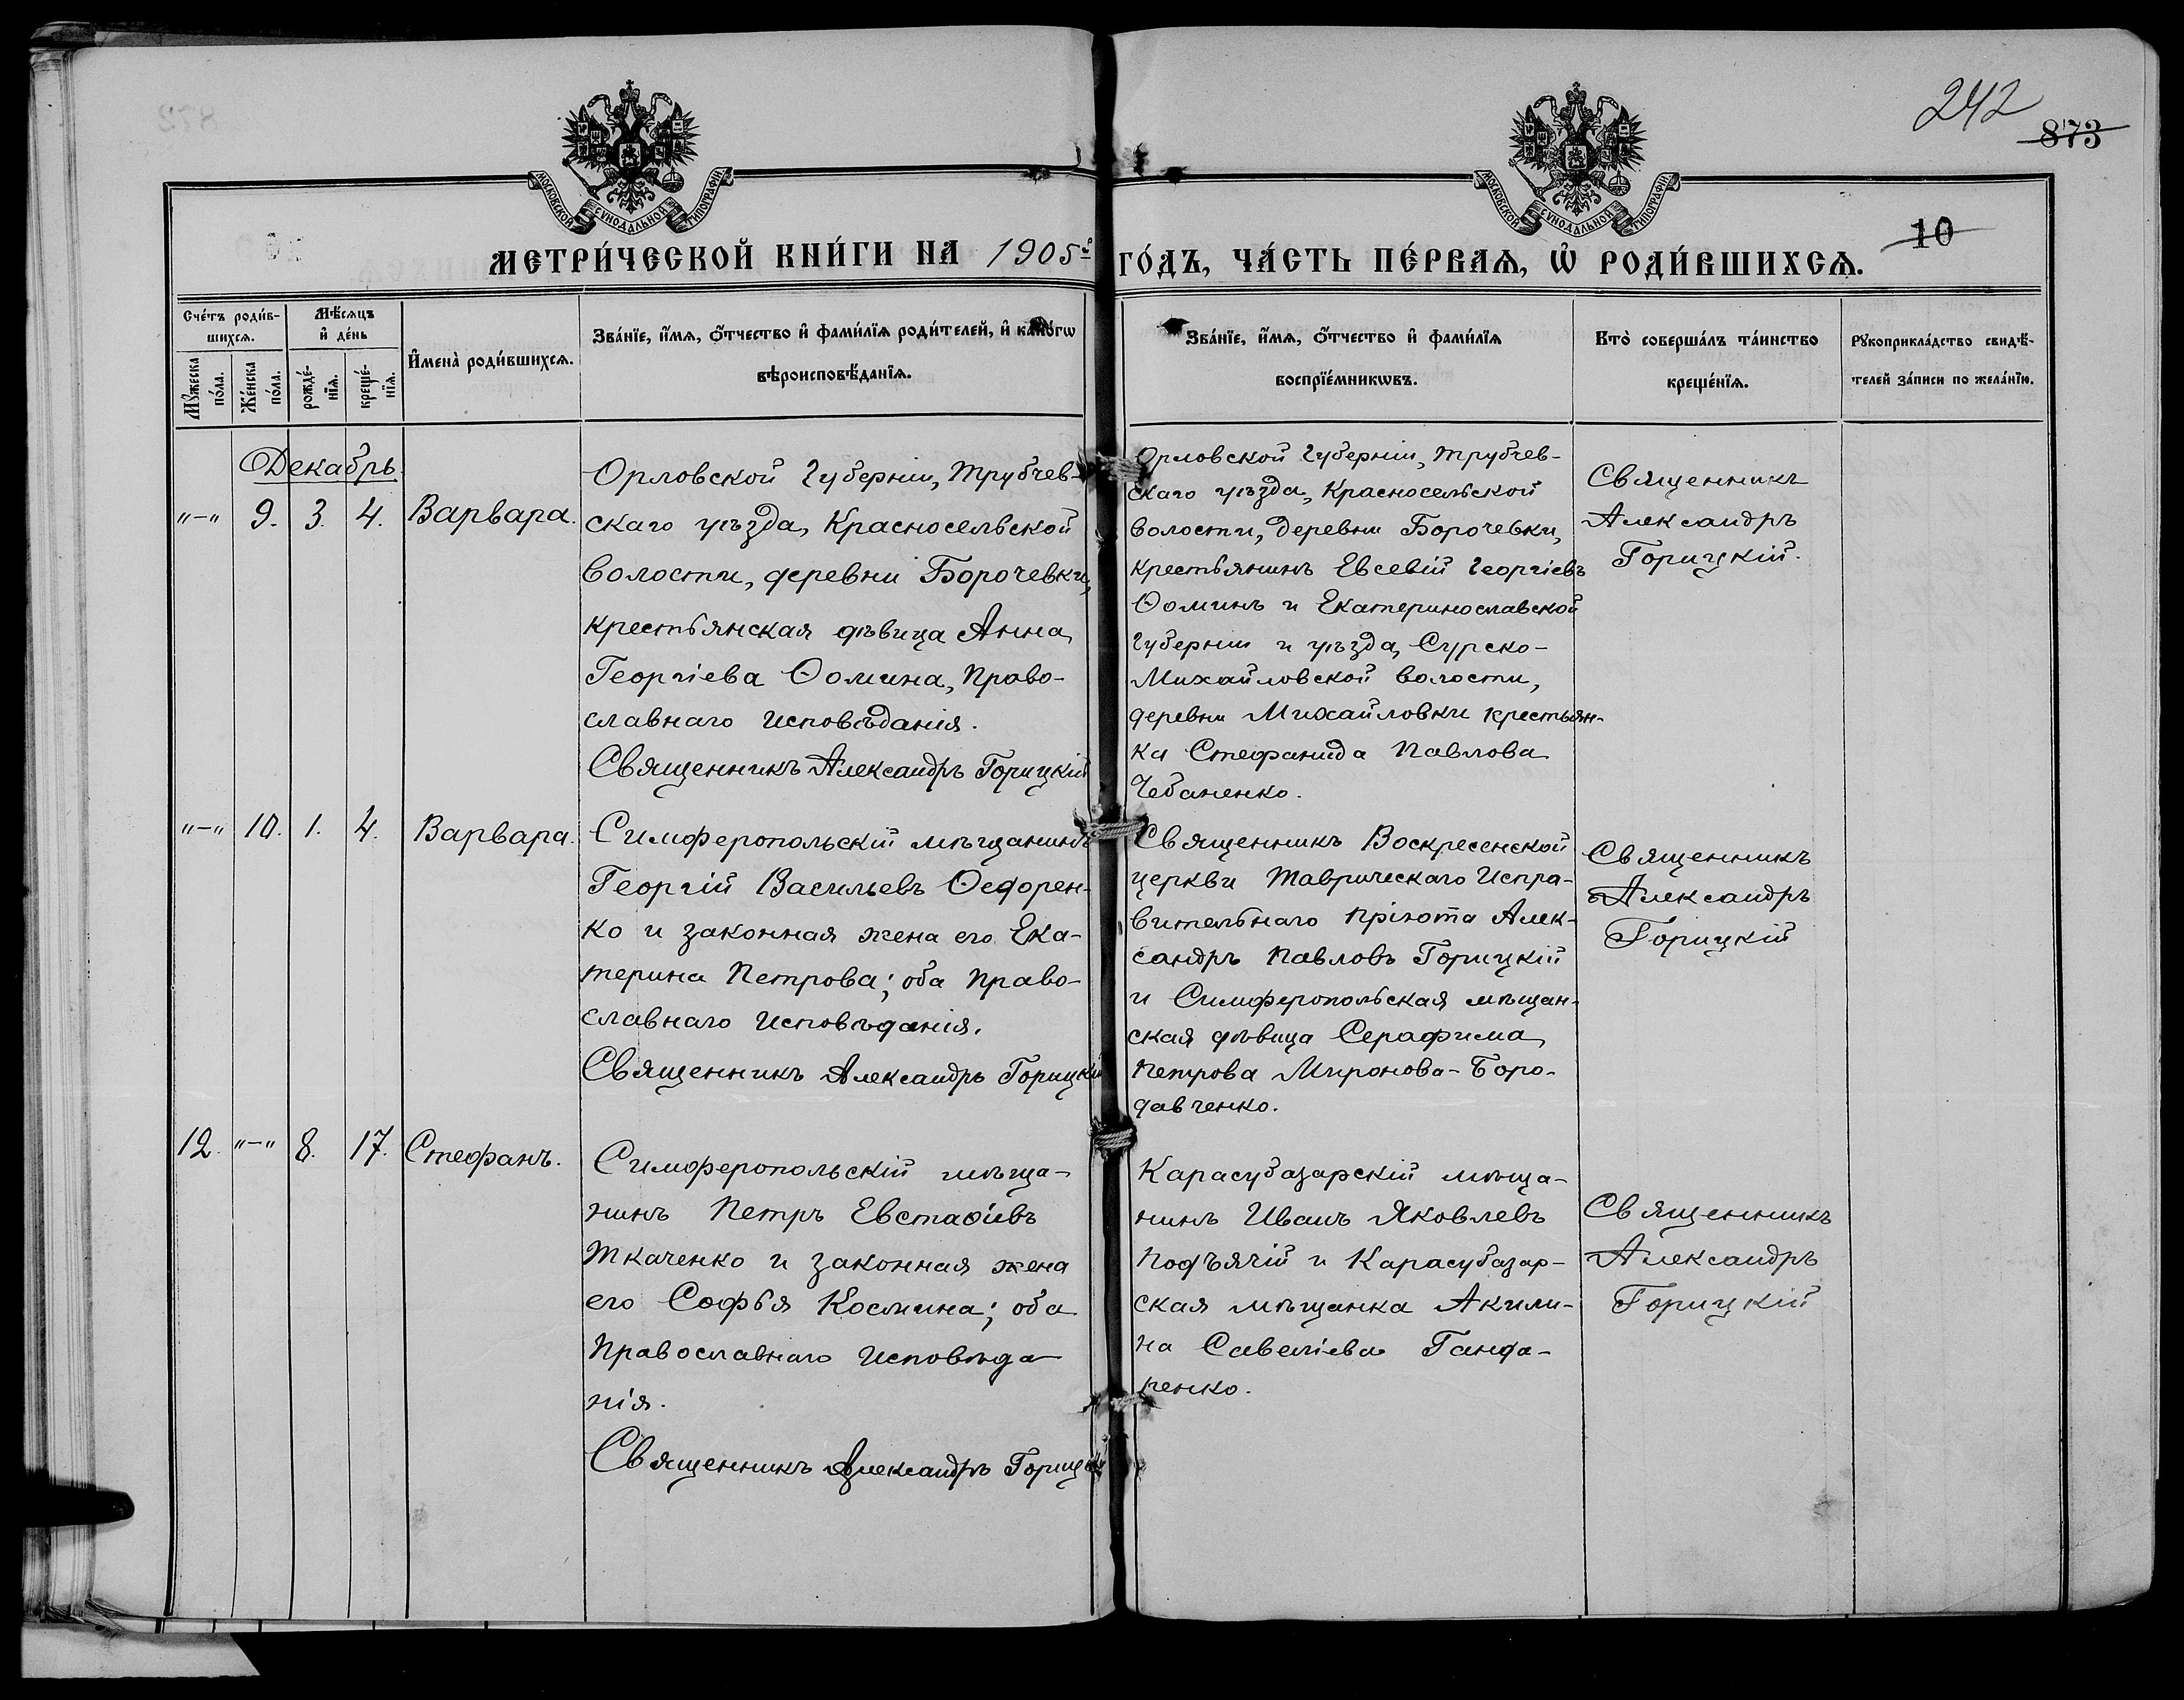 242
873
10
МОСКОВСКОЙ СѴНОДАЛЬНОЙ ТИПОГРАФІИ
МОСКОВСКОЙ СѴНОДАЛЬНОЙ ТИПОГРАФІИ
МЕТРИ́ЧЕСКОЙ КНИ́ГИ НА 1905 г҃ ГО́ДЪ, ЧА́СТЬ ПЕ́РВАѦ, Ѡ҆ РОДИ́ВШИХСѦ.
Сче́тъ роди́в-
шихсѧ.
Мꙋ́жеска по́ла.
Же́нска по́ла.
Мѣ́сѧцъ
и҆ де́нь
рожде́-
нїѧ.
креще́-
нїѧ.
И҆мена̀ роди́вшихсѧ.
Зва́нїе, и҆́мѧ, ѻ҆́тчество и҆ фами́лїѧ роди́телей, и҆ како́гѡ
вѣроисповѣ́данїѧ.
Зва́нїе, и҆́мѧ, ѻ҆́тчество и҆ фами́лїѧ
воспрїе́мникѡвъ.
Кто̀ соверша́лъ та́инство
креще́нїѧ.
Рꙋкоприкла́дство свидѣ́-
телей за́писи по жела́нїю.
Декабрь.
"-" 9. 3. 4. Варвара.
Орловской Губерніи, Трубчев-
скаго уѣзда, Красносельской
волости, деревни Борочевки,
крестьянская дѣвица Анна
Георгіева Ѳомина, Право-
славнаго исповѣданія.
Священникъ Александръ Горицкій
Орловской Губерніи, Трубчев-
скаго уѣзда, Красносельской
волости, деревни Борочевки,
крестьянинъ Евсевій Георгіевъ
Ѳоминъ и Екатеринославской
Губерніи и уѣзда, Сурско-
Михайловской волости,
деревни Михайловки крестьян-
ка Стефанида Павлова
Чебаненко.
Священникъ
Александръ
Горицкій.
"-" 10. 1. 4. Варвара.
Симферопольскій мѣщанинъ
Георгій Васильевъ Ѳедорен-
ко и законная жена его Ека-
терина Петрова; оба Право-
славнаго исповѣданія.
Священникъ Александръ Горицкій
Священникъ Воскресенской
церкви Таврическаго Испра-
вительнаго пріюта Алек-
сандръ Павловъ Горицкій
и Симферопольская мѣщан-
ская дѣвица Серафима
Петрова Миронова-Боро-
давченко.
Священникъ
Александръ
Горицкій
12. "-" 8. 17. Стефанъ.
Симферопольскій мѣща-
нинъ Петръ Евстаѳіевъ
Ткаченко и законная жена
его Софья Космина; оба
Православнаго исповѣда-
нія.
Священникъ Александръ Горицкій
Карасубазарскій мѣща-
нинъ Иванъ Яковлевъ
Подъячій и Карасубазар-
ская мѣщанка Акили-
на Савеліева Ганда-
ренко.
Священникъ
Александръ
Горицкій